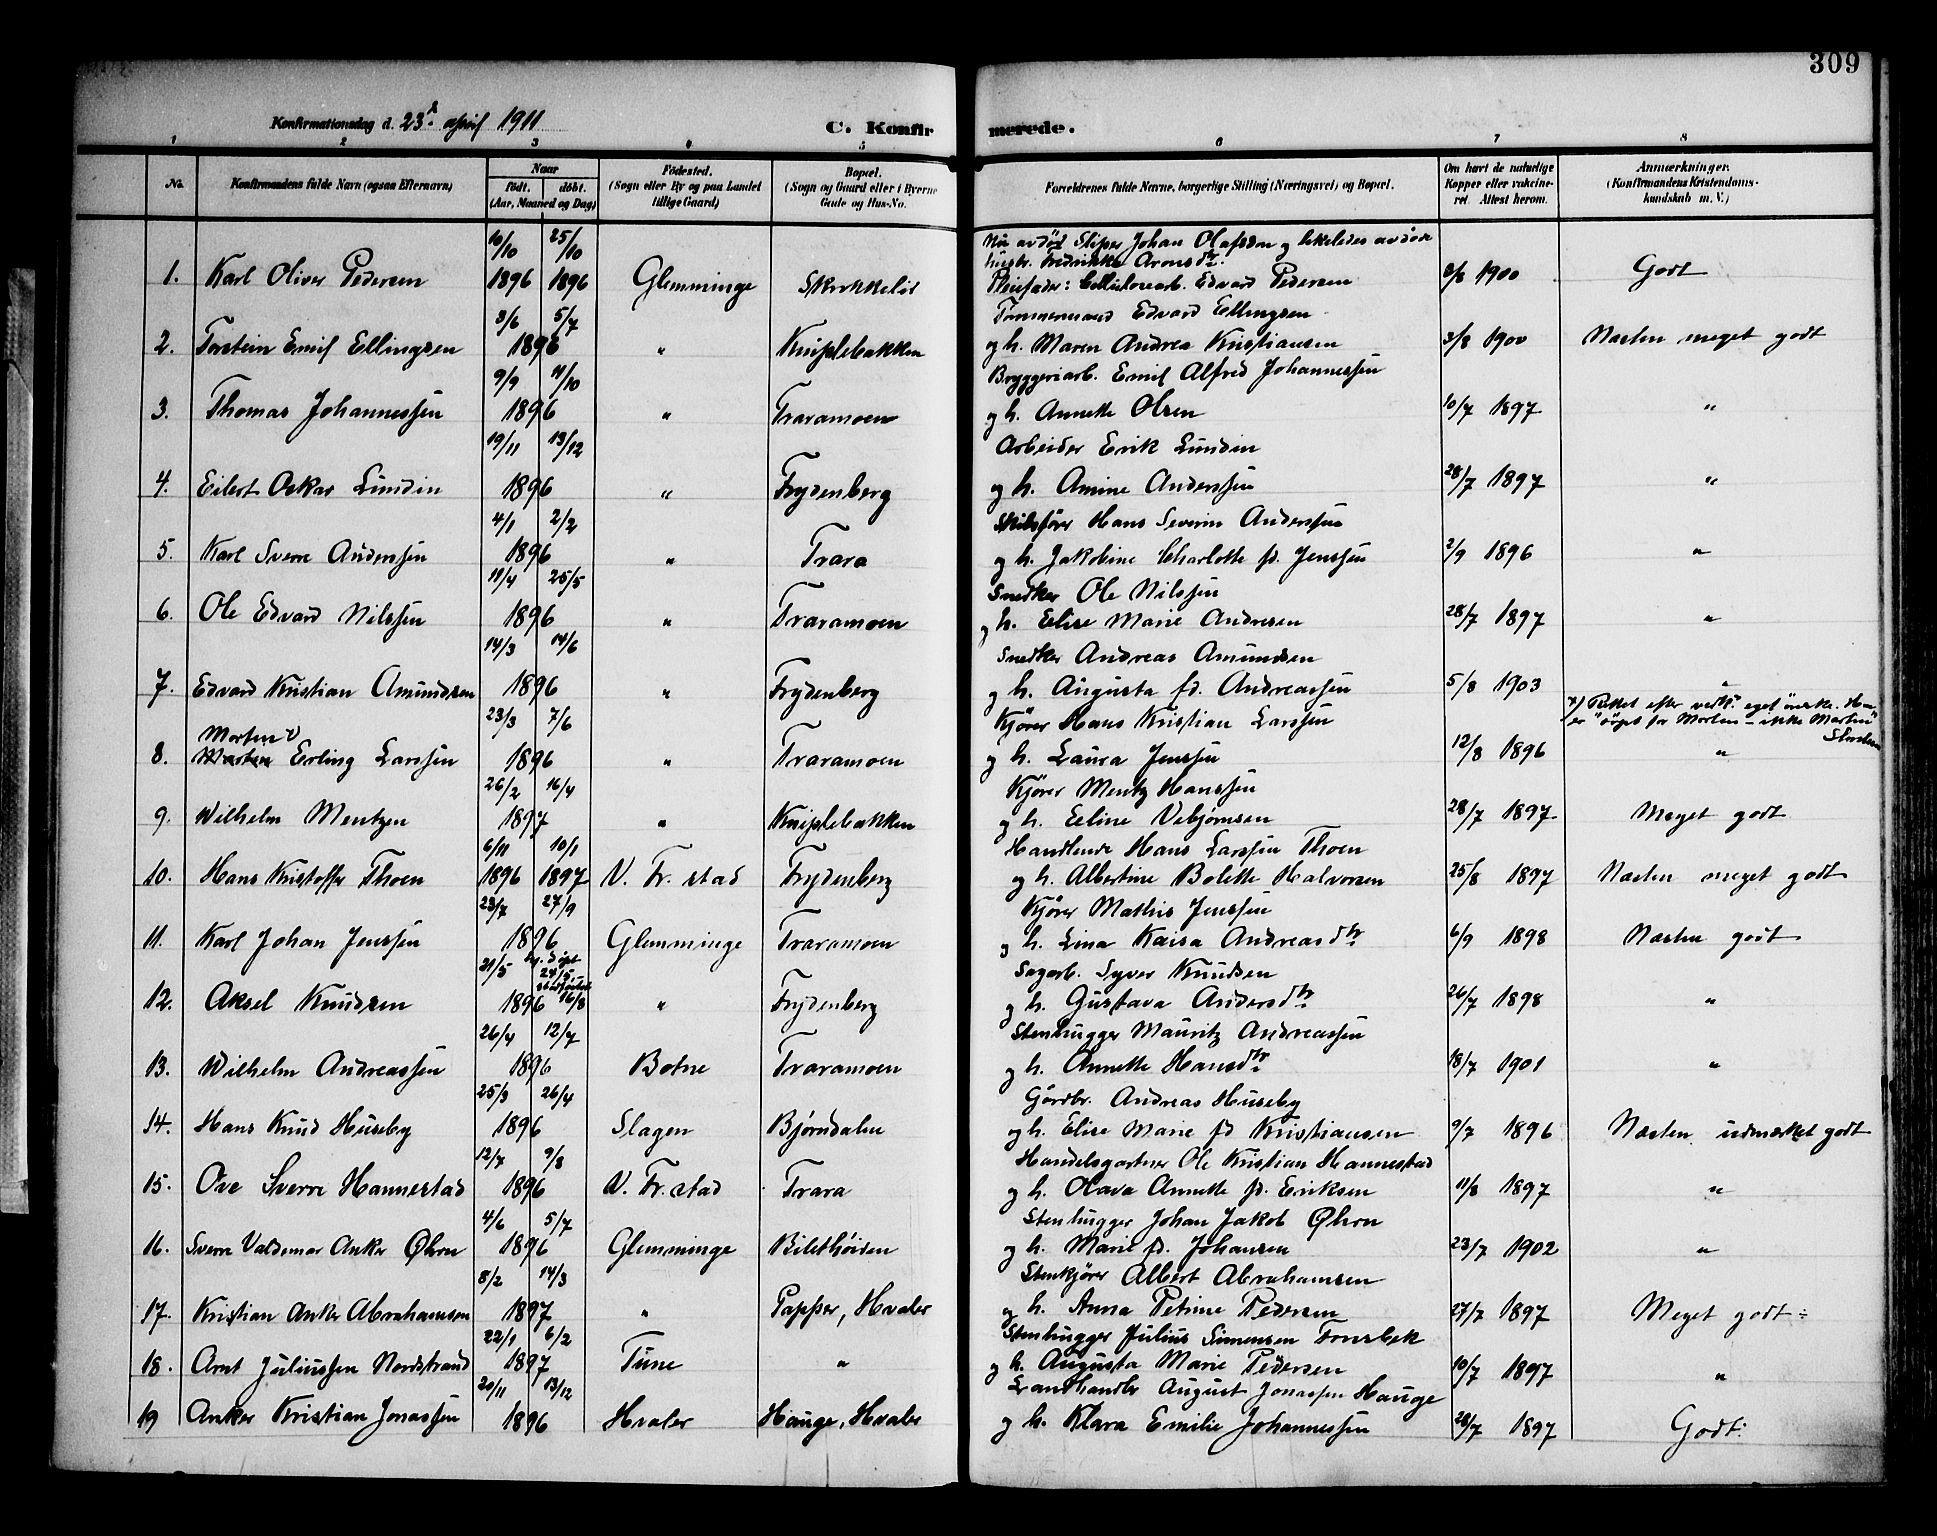 309
Konfirmationsdag d. 23d april 1911 C. Konfirmerede.
1 2 3 4 5 6 7 8
No. Konfirmandens fulde Navn (ogsaa Efternavn) Naar født. døbt. (Aar, Maaned og Dag) Fødested. (Sogn eller By og paa Landet tillige Gaard) Bopæl. (Sogn og Gaard eller i Byerne Gade og Hus-No. Forældrenes fulde Navne, borgerlige Stilling (Næringsvei) og Bopæl. Om havt de naturlige Kopper eller vakcineret. Attest herom. Anmærkninger. (Konfirmandens Kristendomskundskab m. V.)
10/10 25/10 Nu avdød Sliper Johan Olafsson og likeledes avdøde
hustr. Fredrikke Aronsdtr.
1. Karl Oliver Pedersen 1896 1896 Glemminge Skrikkelöi Pleiefader: Cellulosearb. Edvard Pedersen 8/8 1900 Godt
3/6 5/7 Tømmermand Edvard Ellingsen
2. Torstein Emil Ellingsen 1896 " Kniplebakken og h. Maren Andrea Kristiansen 3/8 1900 Næsten meget godt
9/9 11/10 Bryggeriarb. Emil Alfred Johannessen
3. Thomas Johannessen 1896 " Traramoen og h. Annette Olsen 10/7 1897 "
19/11 13/12 Arbeider Erik Lundin
4. Eilert Oskar Lundin 1896 " Frydenberg og h. Amine Anderssen 28/7 1897 "
4/1 2/2 Skibsfører Hans Severin Anderssen
5. Karl Sverre Anderssen 1896 " Trara og h. Jakobine Charlotte fd. Jenssen 2/9 1896 "
11/4 25/5 Snedker Ole Nilssen
6. Ole Edvard Nilssen 1896 " Traramoen og h. Elise Marie Andresen 28/7 1897 "
14/3 14/6 Snedker Andreas Amundsen
7. Edvard Kristian Amundsen 1896 " Frydenberg og h. Augusta fd. Andreassen 5/8 1903 "
23/3 7/6 Kjører Hans Kristian Larssen
Morten
8. Martin Erling Larssen 1896 " Traramoen og h. Laura Jenssen 12/8 1896 "
26/2 16/4 Kjører Mentz Hanssen
9. Wilhelm Mentzen 1897 " Kniplebakken og h. Eeline Vebjørnsen 28/7 1897 Meget godt
6/11 10/1 Handlende Hans Larssen Thoen
10. Hans Kristoffer Thoen 1896 1897 V. Fr. stad Frydenberg og h. Albertine Bolette Halvorsen 25/8 1897 Næsten meget godt
23/7 27/9 Kjører Mathis Jenssen
11. Karl Johan Jenssen 1896 Glemminge Traramoen og h. Lina Kaisa Andreasdtr 6/9 1898 Næsten godt
21/5 24/5 Sagarb. Syver Knudsen
12. Aksel Knudsen 1896 16/8 " Frydenberg og h. Gustava Andersdtr 26/7 1898 "
26/4 12/7 Stenhugger Mauritz Andreassen
13. Wilhelm Andreassen 1896 Botne Traramoen og h. Annette Hansdtr 18/7 1901 "
25/3 26/4 Gårdbr. Andreas Huseby
14. Hans Knud Huseby 1896 Slagen Bjørndalen og h. Elise Marie fd Kristiansen 9/7 1896 Næsten udmærket godt
12/7 9/8 Handelsgartner Ole Kristian Hannestad
15. Ove Sverre Hannestad 1896 V. Fr. stad Trara og h. Olava Annette fd. Eriksen 11/8 1897 "
4/6 5/7 Stenhugger Johan Jakob Øhrn
16. Sverre Valdemar Anker Øhrn 1896 Glemminge Bilethöiden og h. Marie fd. Johansen 23/7 1902 "
8/2 14/3 Stenkjører Albert Abrahamsen
17. Kristian Anker Abrahamsen 1897 " Papper, Hvaler og h. Anna Petrine Pedersen 27/7 1897 Meget godt
22/1 6/2 Stenhugger Julius Simensen Fonsbek
18. Arnt Juliussen Nordstrand 1897 Tune " og h. Augusta Marie Pedersen 10/7 1897 "
20/11 13/12 Landhandler August Jonassen Hauge
19 Anker Kristian Jonassen 1896 Hvaler Hauge, Hvaler og h. Klara Emilie Johannessen 28/7 1897 Godt